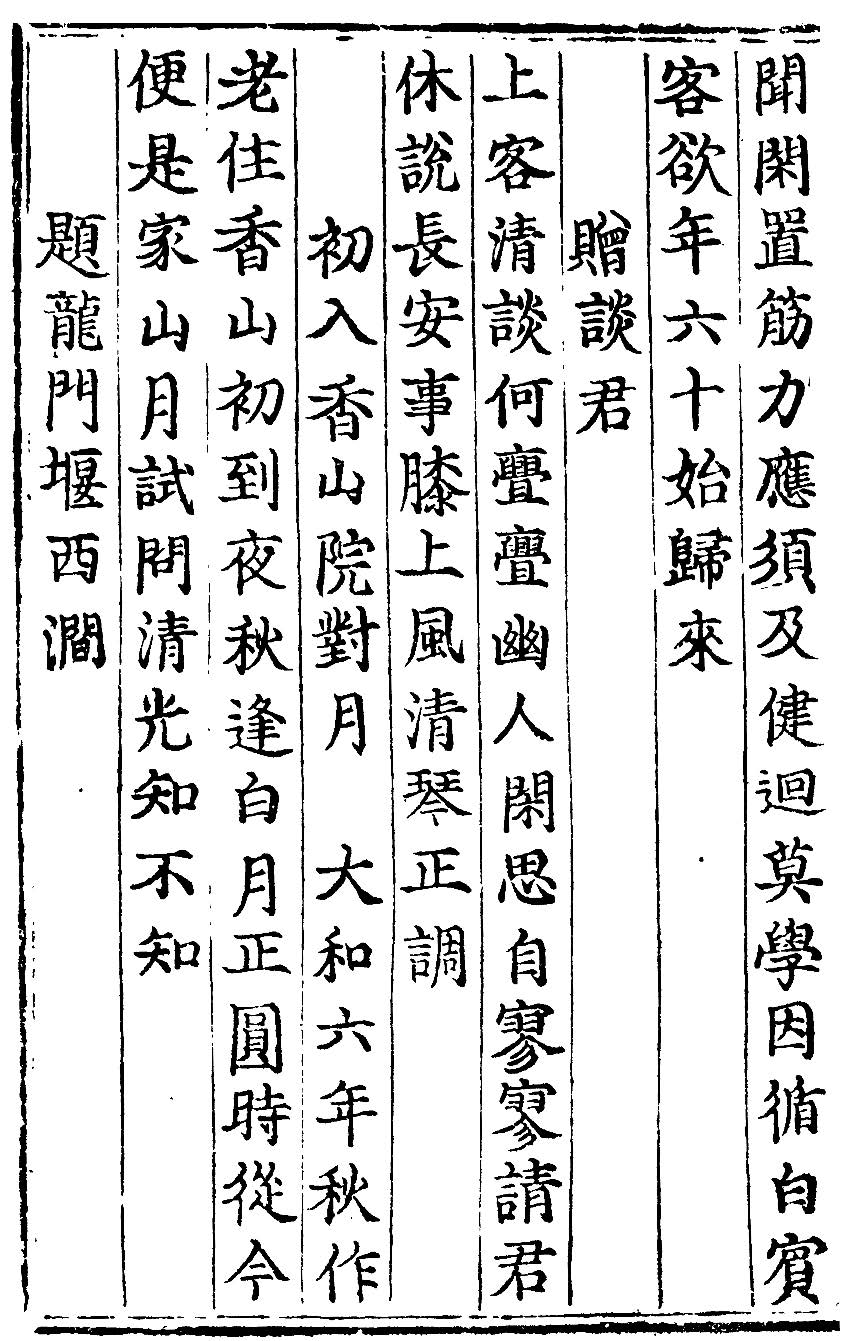 聞閑置筋力應須及健迴莫學因循白賓
客欲年六十始歸來
贈談君
上客清談何亹亹幽人閑思自寥寥請君
休說長安事膝上風清琴正調
初入香山院對月 大和六年秋作
老住香山初到夜秋逢白月正圓時從今
便是家山月試問清光知不知
題龍門堰西澗